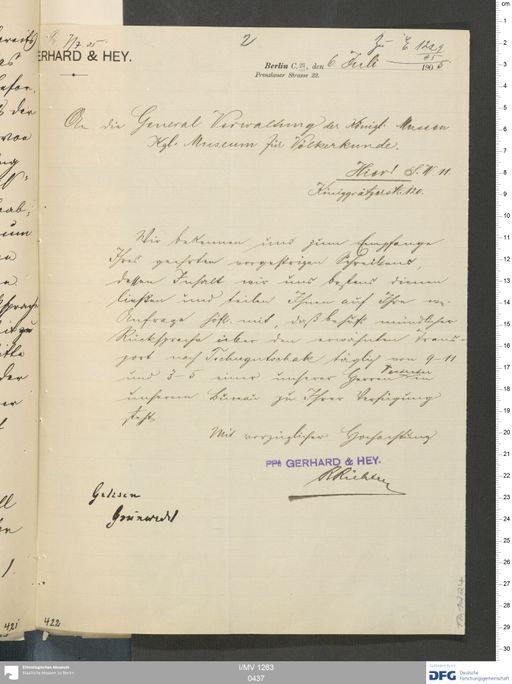 7/7 05
2
Zu E 1221/05
GERHARD & HEY.
Berlin C. 25, den 6 Juli 1905
Prenzlauer Strasse 22.
An die General Verwaltung der Königl. Museen
Kgl. Museum für Völkerkunde.
Hier! S.W 11
Königgrätzerstr. 120.
Wir bekennen uns zum Empfange
Ihres geehrten vorgestrigen Schreibens,
dessen Inhalt wir uns bestens dienen
ließen und teilen Ihnen auf Ihre
Anfrage höfl. mit, daß behufs mündlicher
Rücksprache ueber den erwähnten Trans-
port nach Tschugutschak täglich von 9-11
und 3-5 einer unserer Herren Vertreter in
unserem Bureau zu Ihrer Verfügung
steht.
Mit vorzüglicher Hochachtung
ppa GERHARD & HEY.
RRichter
Gelesen
Grünwedel
421
422
I/MV 1263
0437
Ethnologisches Museum
Staatliche Museen zu Berlin
GEFÖRDERT VON
DFG Deutsche
Forschungsgemeinschaft